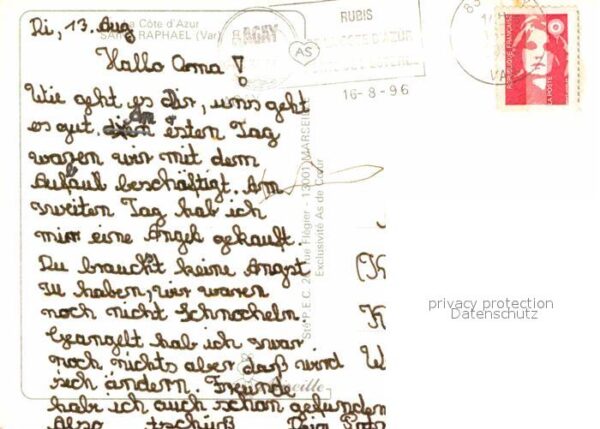 La Côte d'Azur
SAINT-RAPHAEL (Var)
Di, 13. Aug
Hallo Oma!
Wie geht es Dir, uns geht
es gut. Am ersten Tag
waren wir mit dem
Aufbaull beschäftigt. Am
zweiten Tag hab ich
mir eine Angel gekauft.
Du brauchst keine Angst
zu haben, wir waren
noch nicht Schnocheln.
Geangelt hab ich zwar
noch nichts aber daß wird
sich ändern. Freunde
habe ich auch schon gefunden
Also tschüß Dein
RUBIS
16-8-96
AS
VAR
REPUBLIQUE FRANÇAISE
LA POSTE
Sté P.E.C. rue Flégier - 13001 MARSEILLE
Exclusivité As de Cœur
privacy protection
Datenschutz